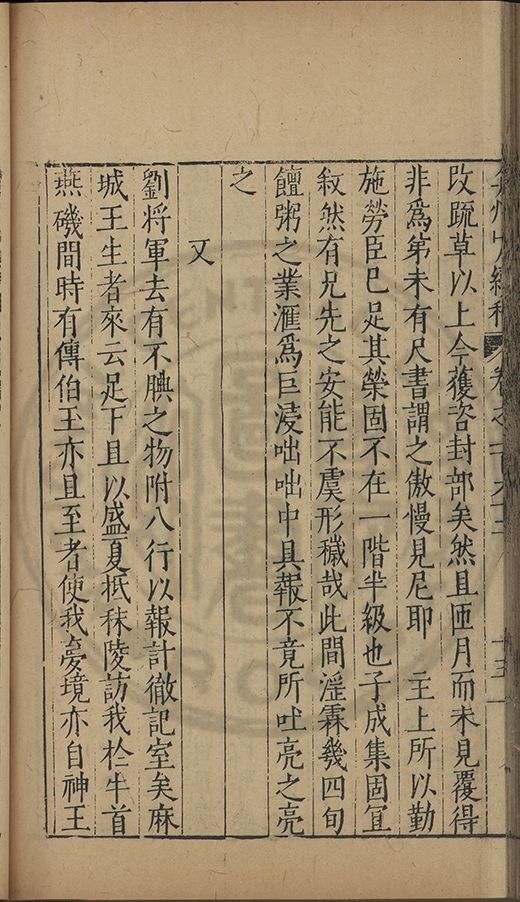 弇州山人續稿 卷之
攺疏草以上今獲咨封部矣然且匝月而未見覆得
非爲第未有尺書謂之傲慢見尼耶　主上所以勤
施勞臣已足其榮固不在一階半級也子成集固宜
敘然有兄先之安能不虞形穢哉此間滛霖幾四旬
饘粥之業滙爲巨浸咄咄中具報不竟所吐亮之亮
之
又
劉將軍去有不腆之物附八行以報計徹記室矣麻
城王生者來云足下且以盛夏抵秣陵訪我於牛首
燕磯間時有傳伯玉亦且至者使我夢境亦自神王